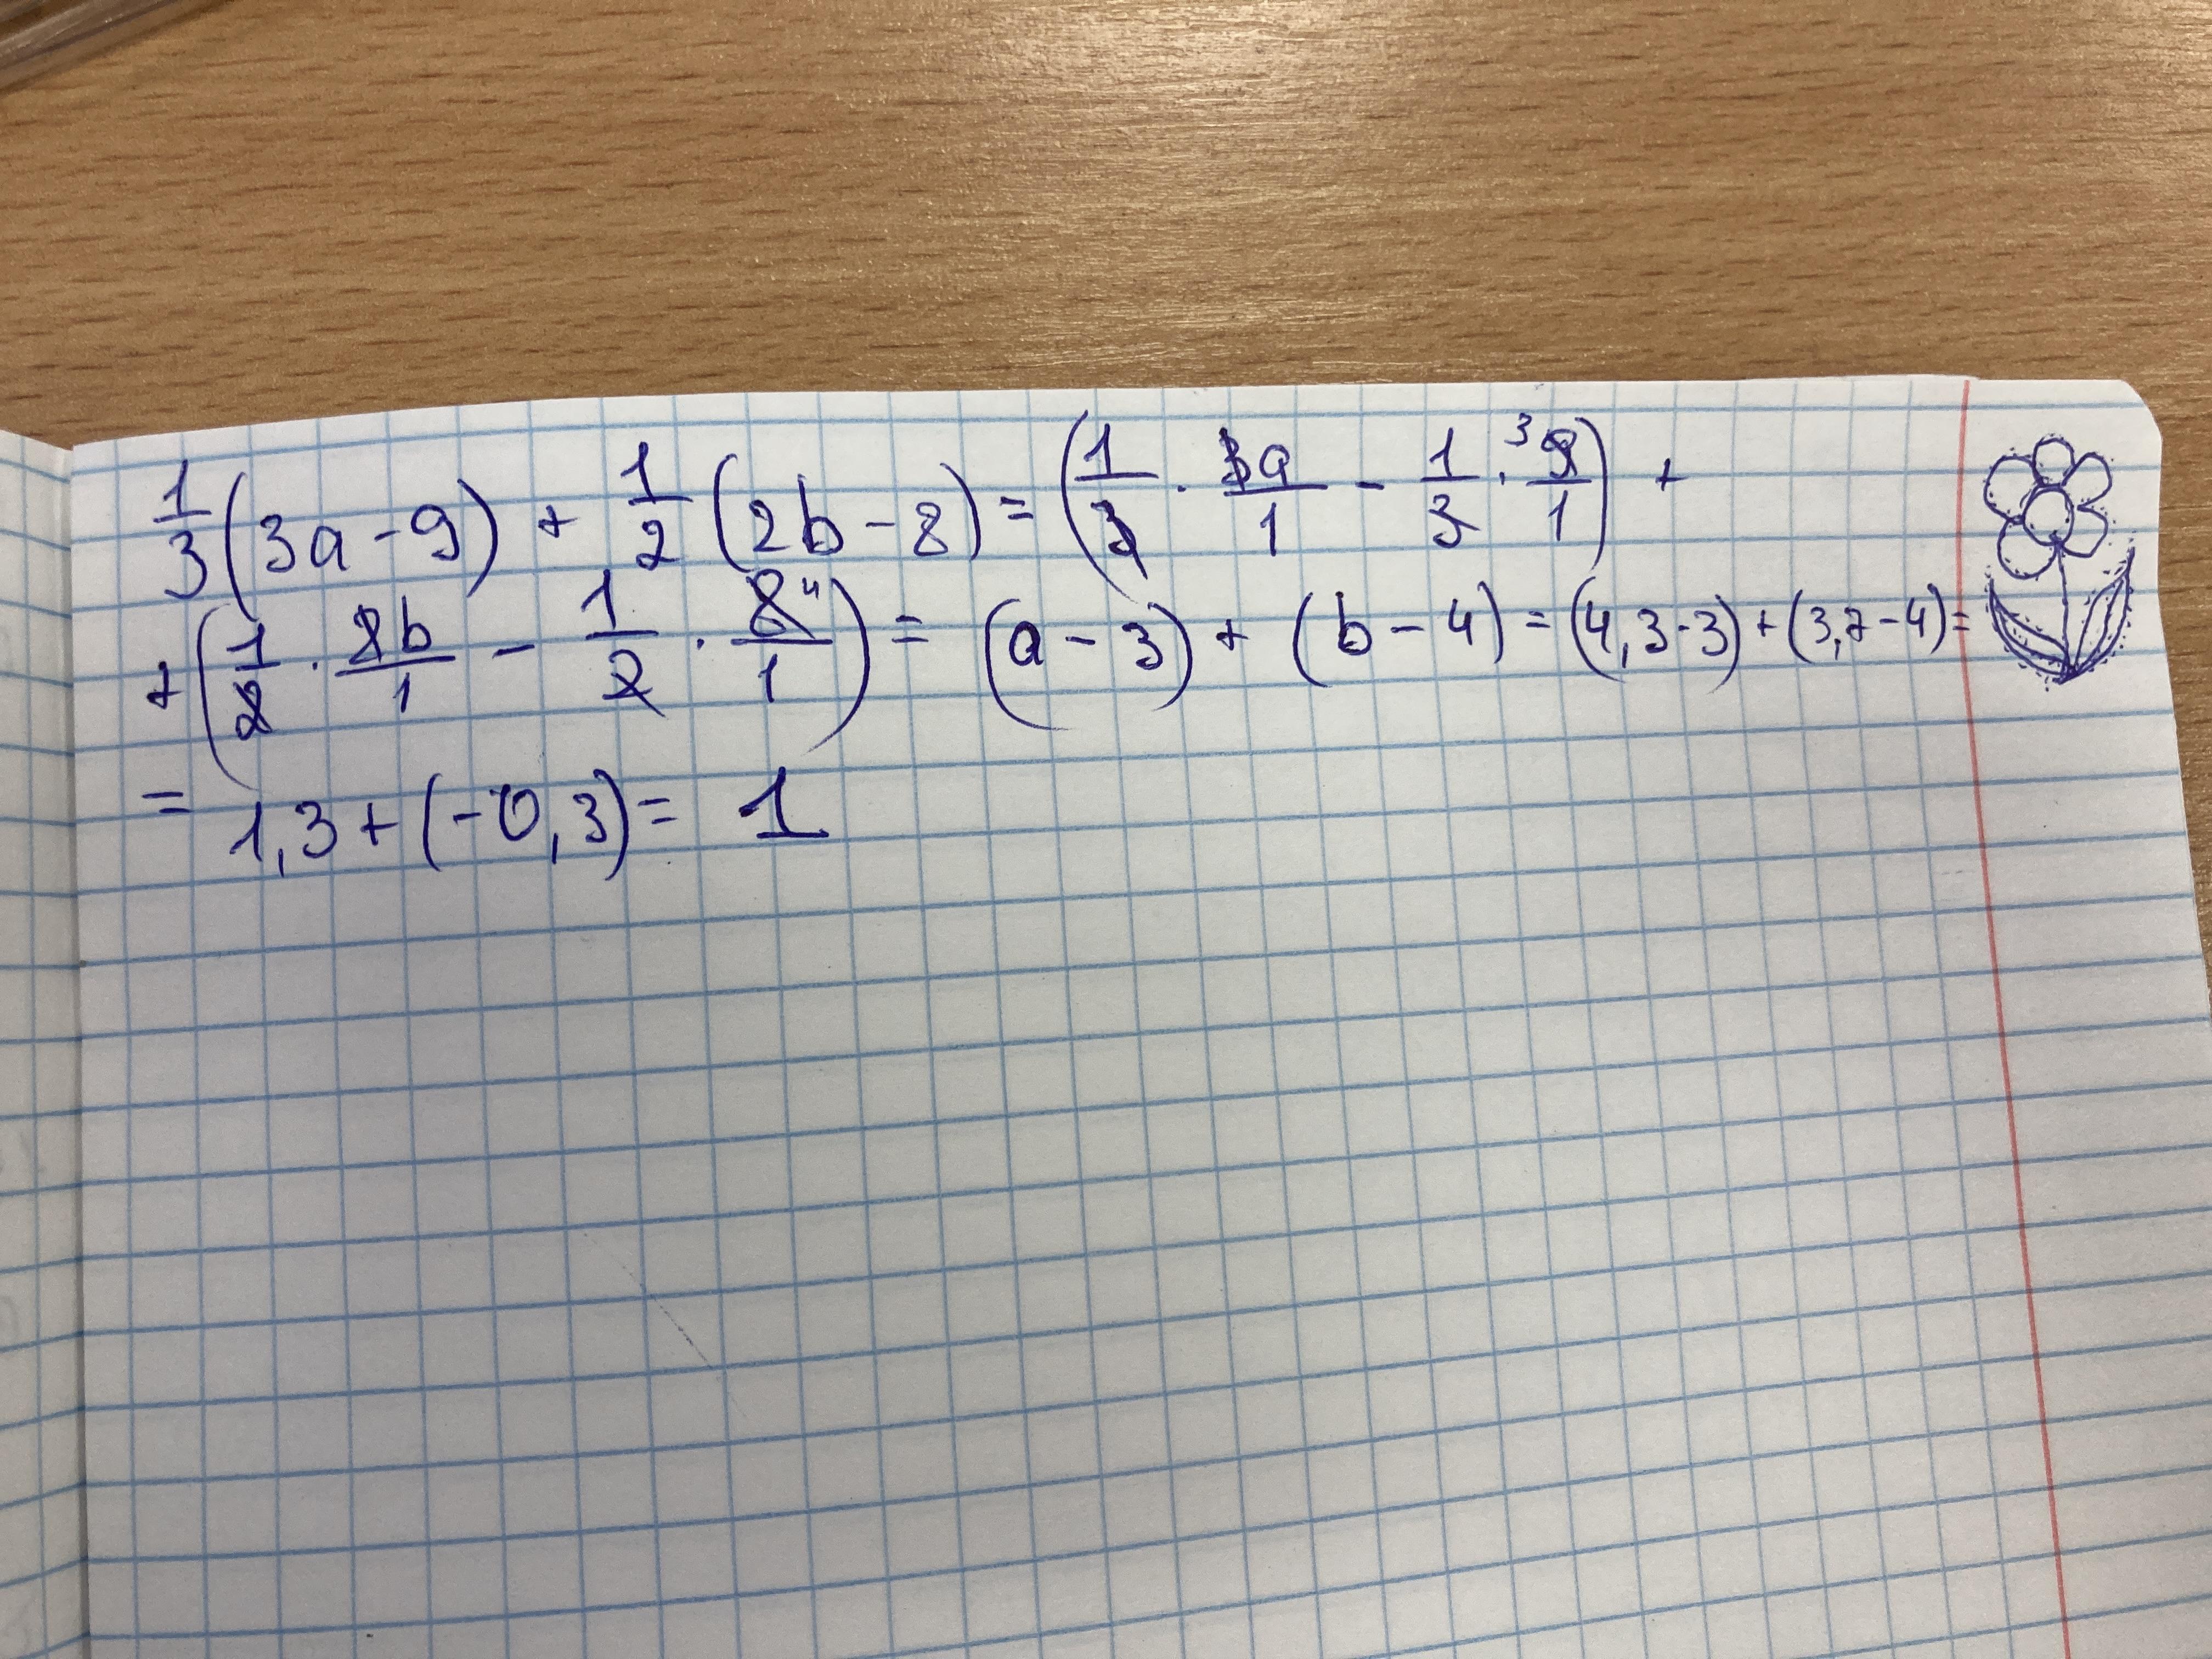 1/3 (3a - 9) + 1/2 (2b - 8) = (1/3 · 3a/1 - 1/3 · 9/1 3) +
+ (1/2 · 2b/1 - 1/2 · 8/1 4) = (a - 3) + (b - 4) = (4,3 - 3) + (3,7 - 4) =
= 1,3 + (-0,3) = 1